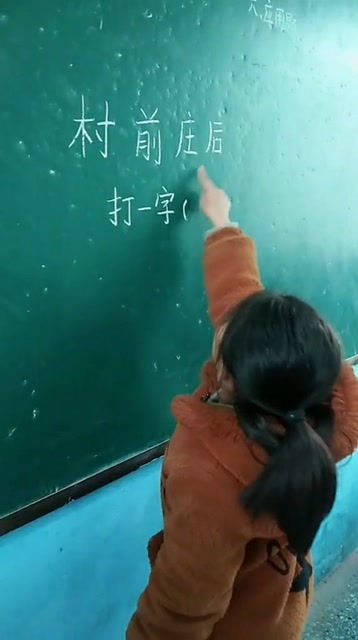 村前庄后
打一字(